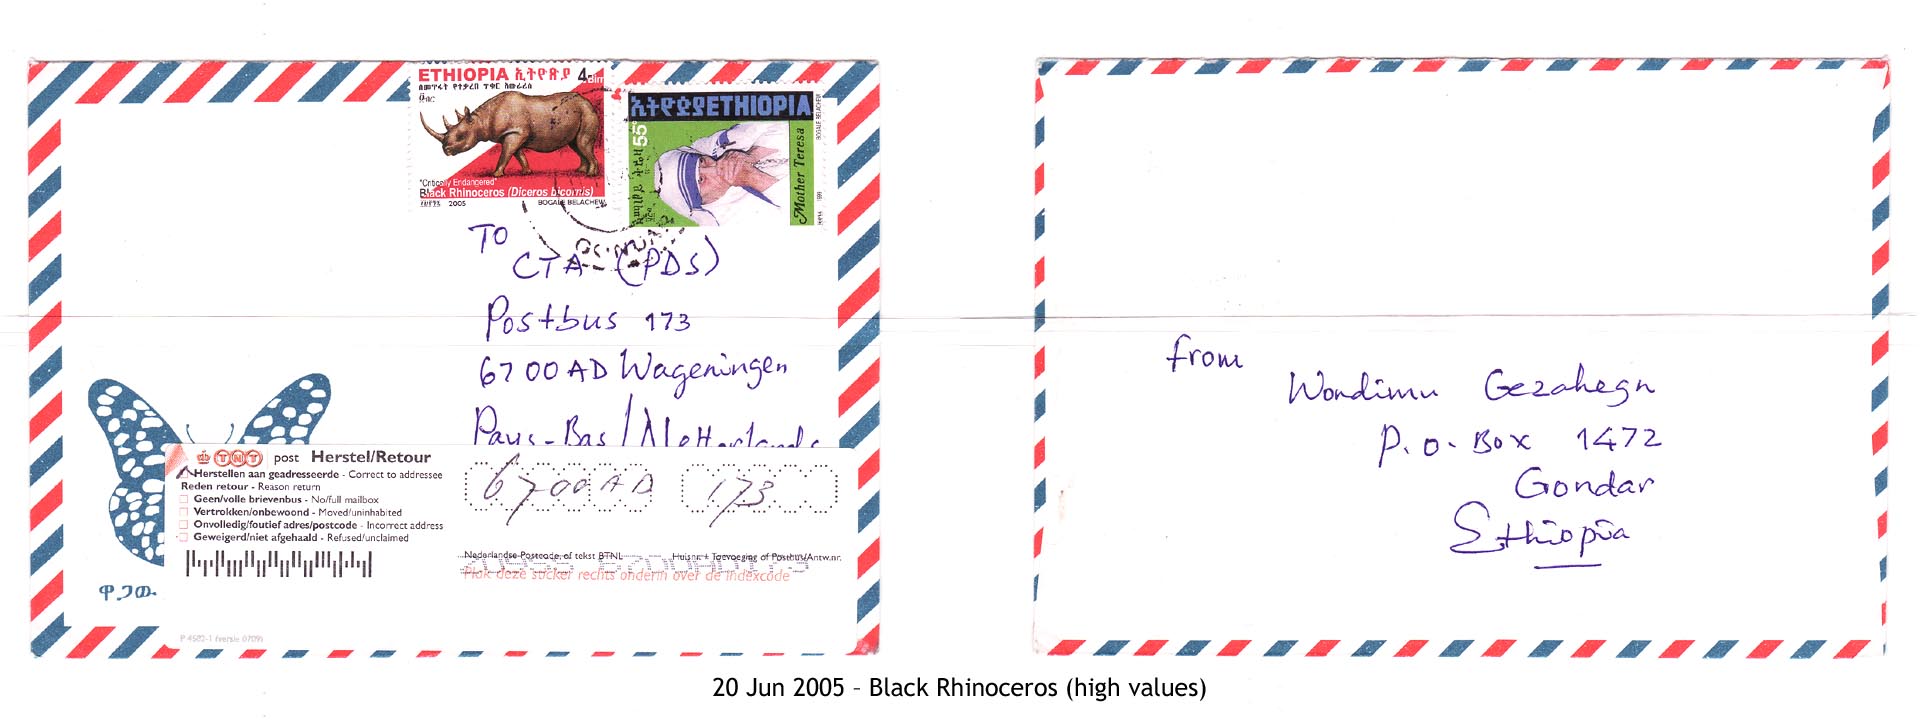 ETHIOPIA ኢትዮጵያ 4-Birr
ለመጥፋት የተቃረበ ጥቁር አውራሪስ
"Critically Endangered"
Black Rhinoceros (Diceros bicornis)
2005 BOGALE BELACHEW
ኢትዮጵያ ETHIOPIA
55
Mother Teresa
BOGALE BELACHEW
TO
CTA (PDS)
Postbus 173
6700 AD Wageningen
Pays-Bas/Netherlands
TNT post Herstel/Retour
Herstellen aan geadresseerde - Correct to addressee
Reden retour - Reason return
Geen/volle brievenbus - No/full mailbox
Vertrokken/onbewoond - Moved/uninhabited
Onvolledig/foutief adres/postcode - Incorrect address
Geweigerd/niet afgehaald - Refused/unclaimed
6700 AD 173
Nederlandse Postcode, of tekst BTNL Huisnr. + Toevoeging of Postbus/Antw.nr.
Plak deze sticker rechts onderin over de indexcode
ዋጋው
P 4582-1 (versie 0709)
from
Wondimu Gezahegn
P.O. Box 1472
Gondar
Ethiopia
20 Jun 2005 – Black Rhinoceros (high values)